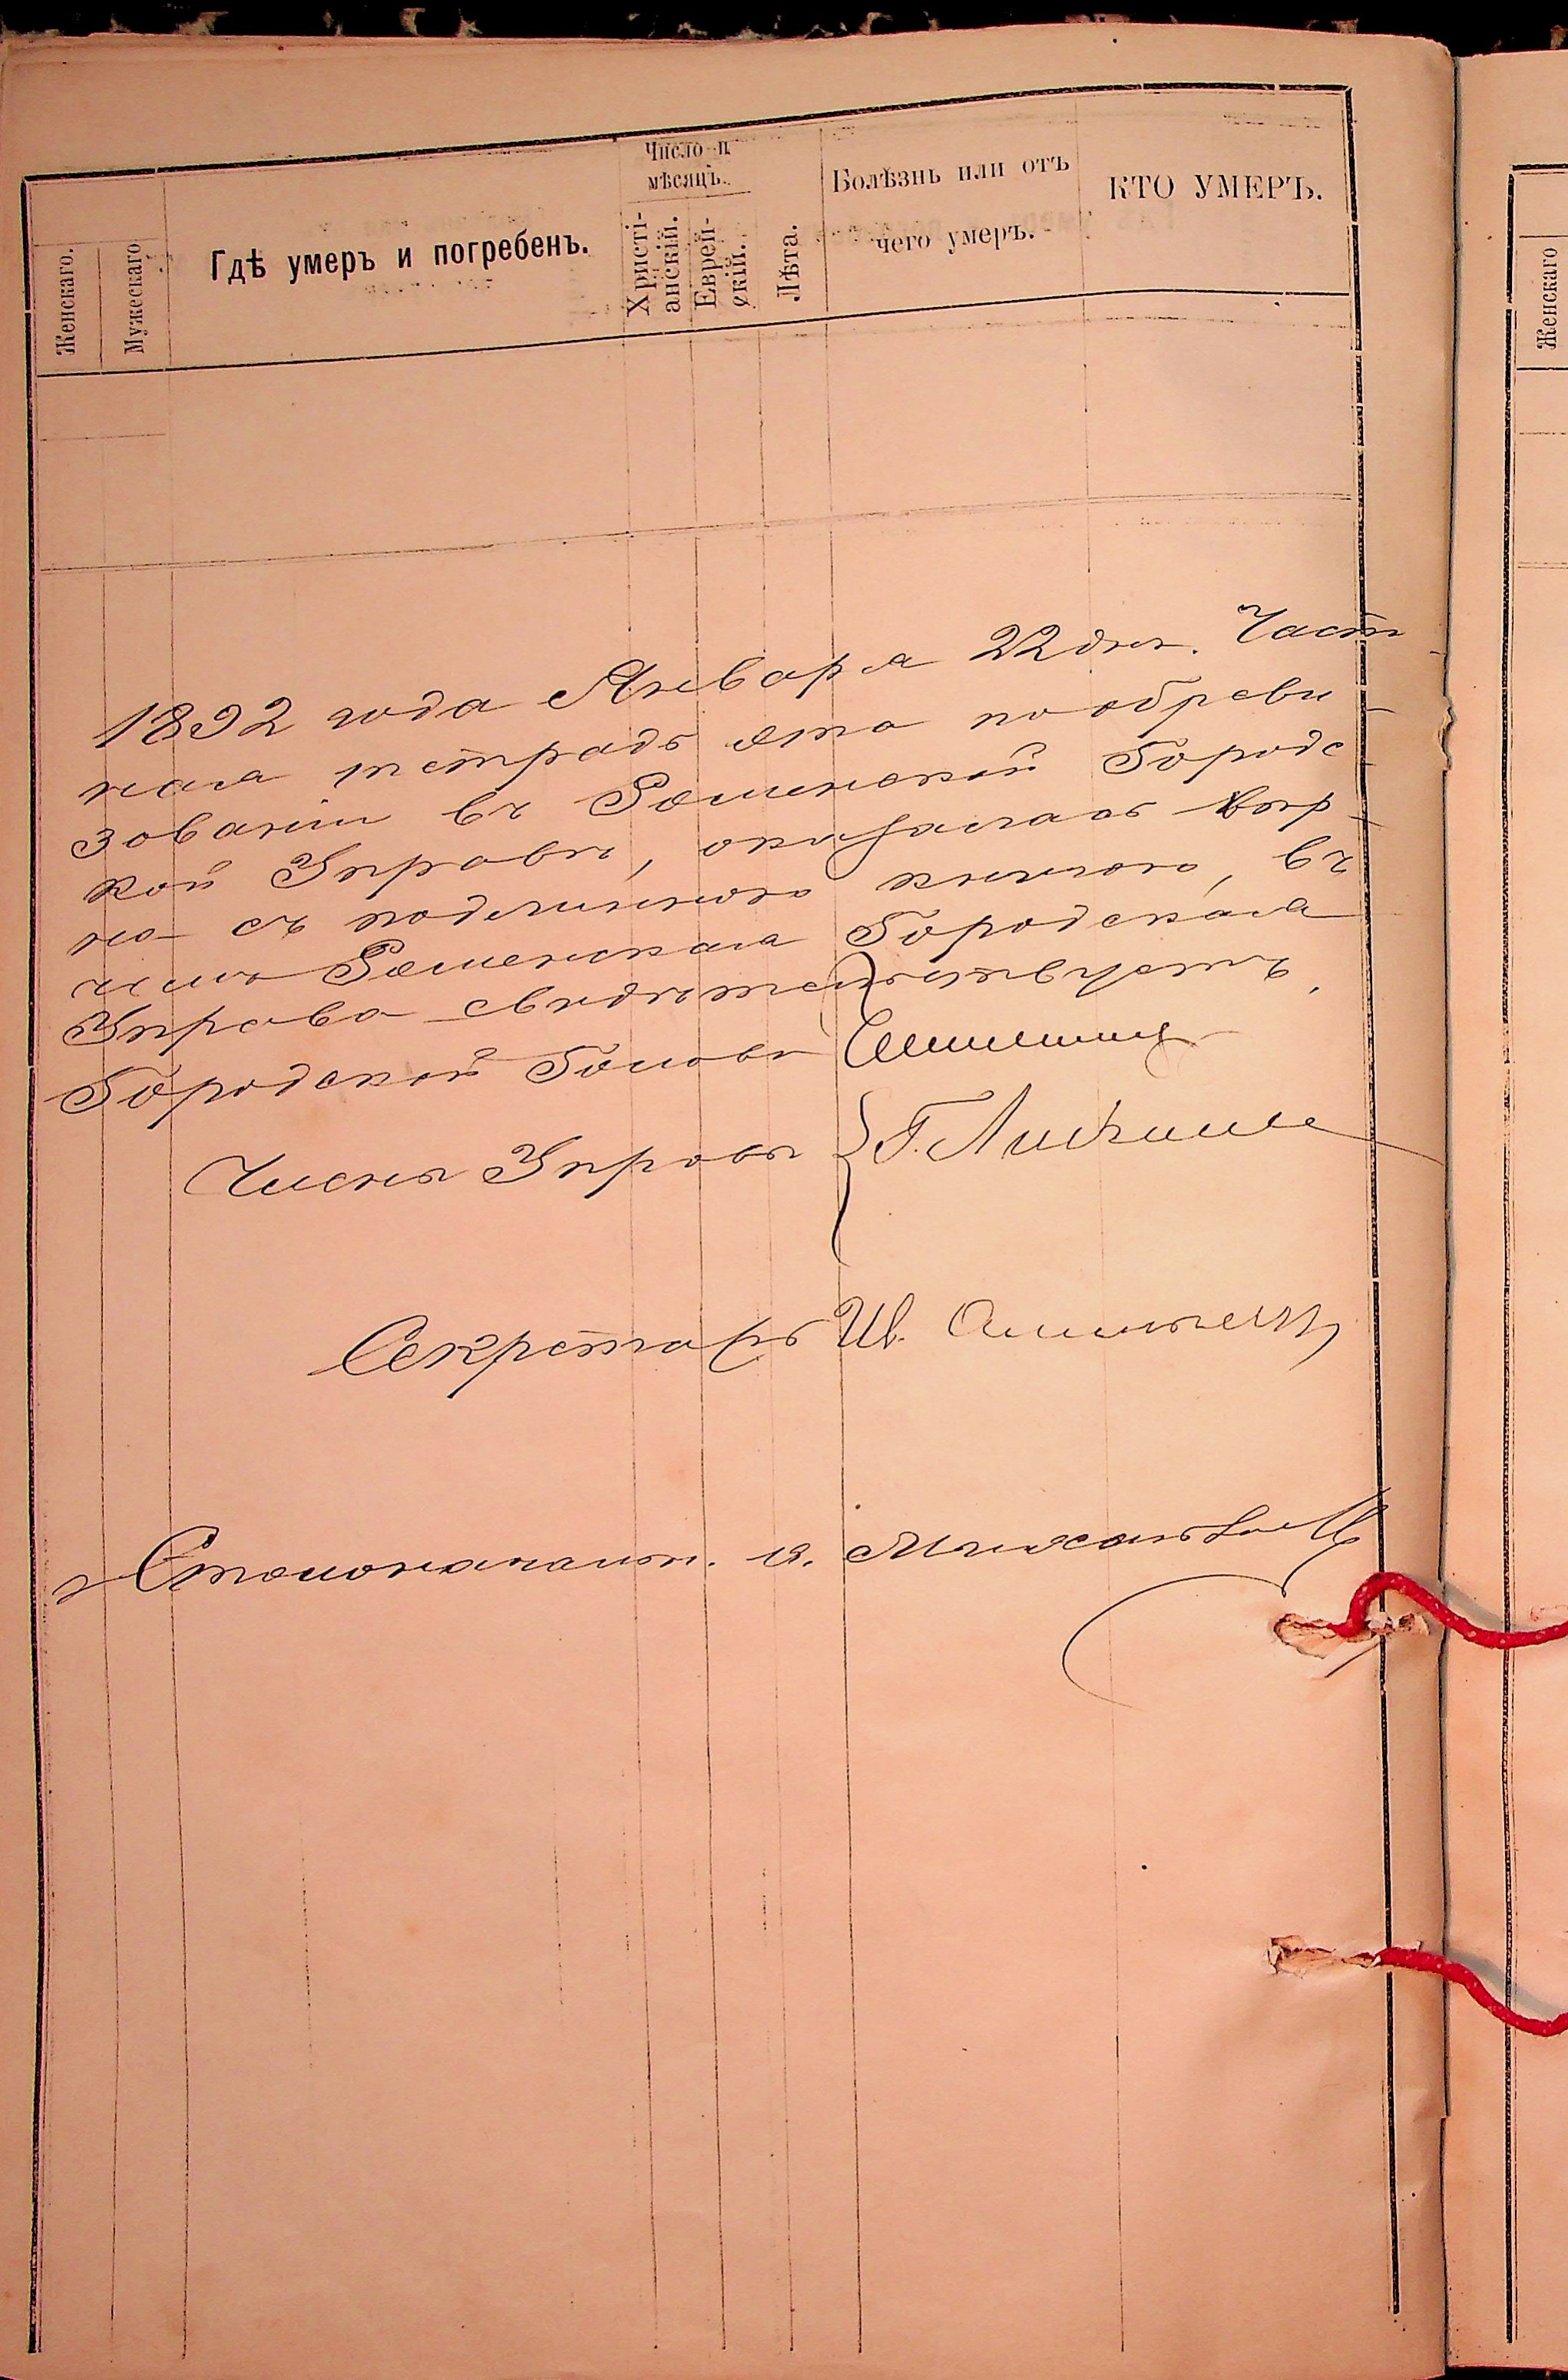 Женскаго.
Мужескаго
Гдѣ умеръ и погребенъ.
Число и
мѣсяцъ.
Христі-
анскій.
Еврей-
скій.
Лѣта.
Болѣзнь или отъ
чего умеръ.
КТО УМЕРЪ.
1892 года Января 22 дня. Част
ная тетрадь эта по обреви-
зованіи въ Роменской Городс-
кой Управѣ, оказалась вѣр-
на съ подлинною книгою, въ
чемъ Роменская Городская
Управа свидѣтельствуетъ.
Городской Голова
Члены Управы
Секретарь Ив.
Столоначальн.
Женскаго